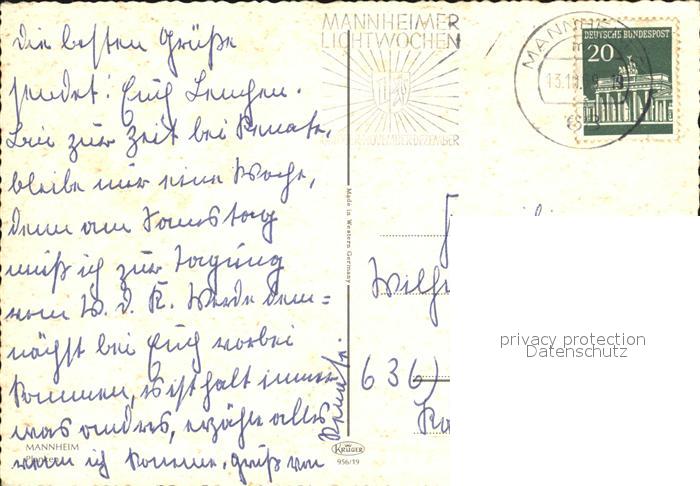 die besten Grüße
sendet Euch Lenchen.
Bin zur Zeit bei Renate,
bleibe nur eine Woche,
denn am Samstag
muß ich zur Tagung
vom V. d. K. Werde dem=
nächst bei Euch vorbei
kommen, es ist halt immer
was andres, erzähle alles
wenn ich komme, Gruß von
Renate.
MANNHEIM
MANNHEIMER
LICHTWOCHEN
NOVEMBER DEZEMBER
MANNHEIM
DEUTSCHE BUNDESPOST
20
Made in Western Germany
KRÜGER
956/19
636)
privacy protection
Datenschutz